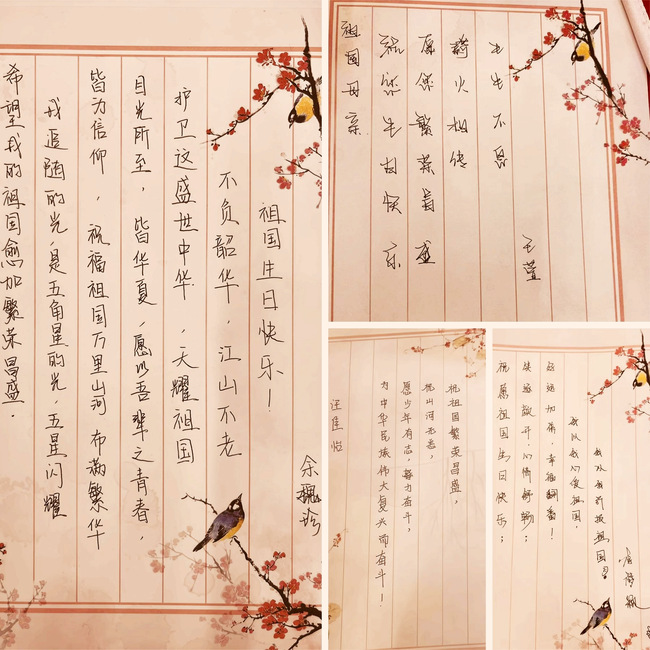 希望我的祖国愈加繁荣昌盛.
我追随的光,是五角星的光,五星闪耀
皆为信仰,祝福祖国万里山河 布满繁华
目光所至,皆华夏,愿以吾辈之青春,
护卫这盛世中华,天耀祖国
不负韶华,江山不老
祖国生日快乐!
余 珍
祖国母亲
祝您生日快乐
愿您繁荣昌盛
薪火相传
生生不息
王萱
祝祖国繁荣昌盛,
祝山河无恙,
愿少年有志,努力奋斗,
为中华民族伟大复兴而奋斗!
祝愿祖国生日快乐;
敞开,心情舒畅;
加满,幸福翻番!
我以我们爱祖国,
祖国